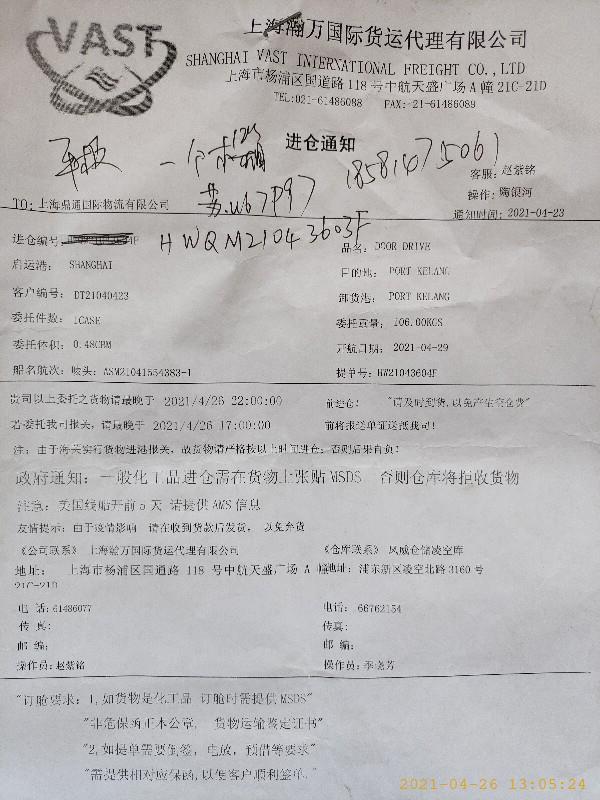 VAST
上海瀚万国际货运代理有限公司
SHANGHAI VAST INTERNATIONAL FREIGHT CO.,LTD
上海市杨浦区国道路 118 号中航天盛广场 A 幢 21C-21D
TEL:021-61486088 FAX:-21-61486089
进仓通知
一个木箱
18581475061
苏U67P97
客服: 赵紫铭
操作: 陶银河
TO: 上海鼎通国际物流有限公司
通知时间: 2021-04-23
进仓编号
HWQM21043603F
品名: DOOR DRIVE
启运港: SHANGHAI
目的地: PORT KELANG
客户编号: DT21040423
卸货港: PORT KELANG
委托件数: 1CASE
委托重量: 106.00KGS
委托体积: 0.48CBM
开航日期: 2021-04-29
船名航次: 唛头: ASM21041554383-1
提单号: HW21043604F
贵司以上委托之货物请最晚于 2021/4/26 22:00:00
前进仓: "请及时到货,以免产生亏仓费"
若委托我司报关, 请最晚于 2021/4/26 17:00:00
前将报送单证送抵我司!
注: 由于海关实行货物进港报关, 故货物请严格按以上时间进仓, 否则后果自负!
政府通知: 一般化工品进仓需在货物上张贴 MSDS, 否则仓库将拒收货物
注意: 美国线贴开前 5 天 请提供 AMS 信息
友情提示: 由于疫情影响 请在收到货款后发货, 以免弃货
《公司联系》 上海瀚万国际货运代理有限公司
《仓库联系》 风威仓储凌空库
地址: 上海市杨浦区国通路 118 号中航天盛广场 A 幢
21C-21D
地址: 浦东新区凌空北路 3160 号
电 话: 61486077
电话: 66762154
传 真:
传真:
邮 编:
邮 编:
操作员: 赵紫铭
操作员: 季晓芳
"订舱要求: 1,如货物是化工品 订舱时需提供 MSDS"
"非危保函正本公章, 货物运输鉴定证书"
"2,如提单需要倒签, 电放, 预借等要求"
"需提供相对应保函,以便客户顺利签单."
2021-04-26 13:05:24